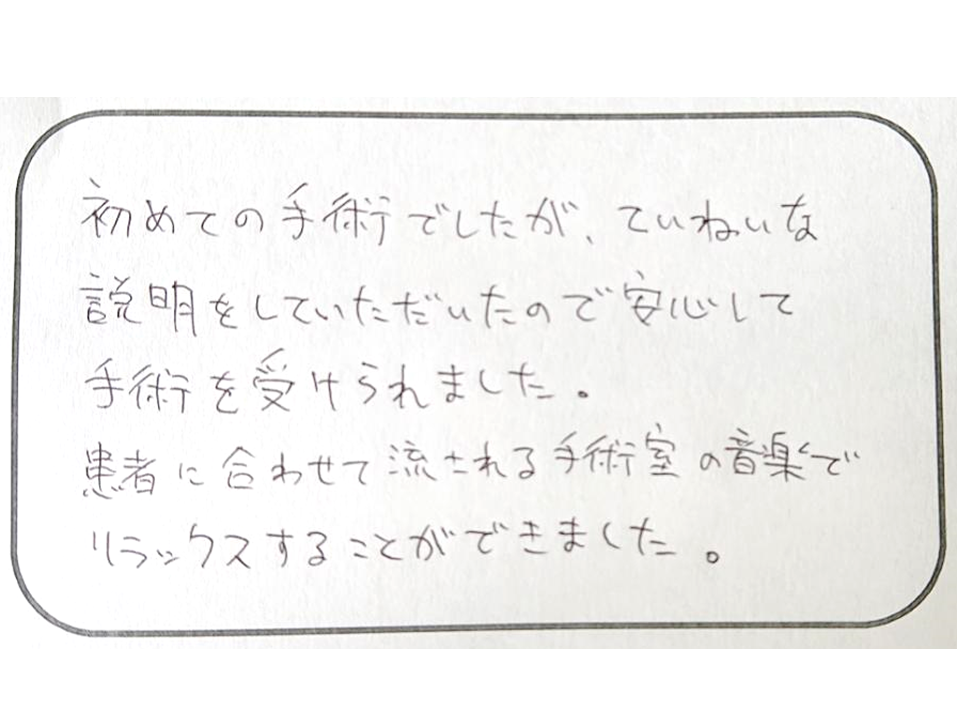 初めての手術でしたが、ていねいな
説明をしていただいたので安心して
手術を受けられました。
患者に合わせて流される手術室の音楽で
リラックスすることができました。